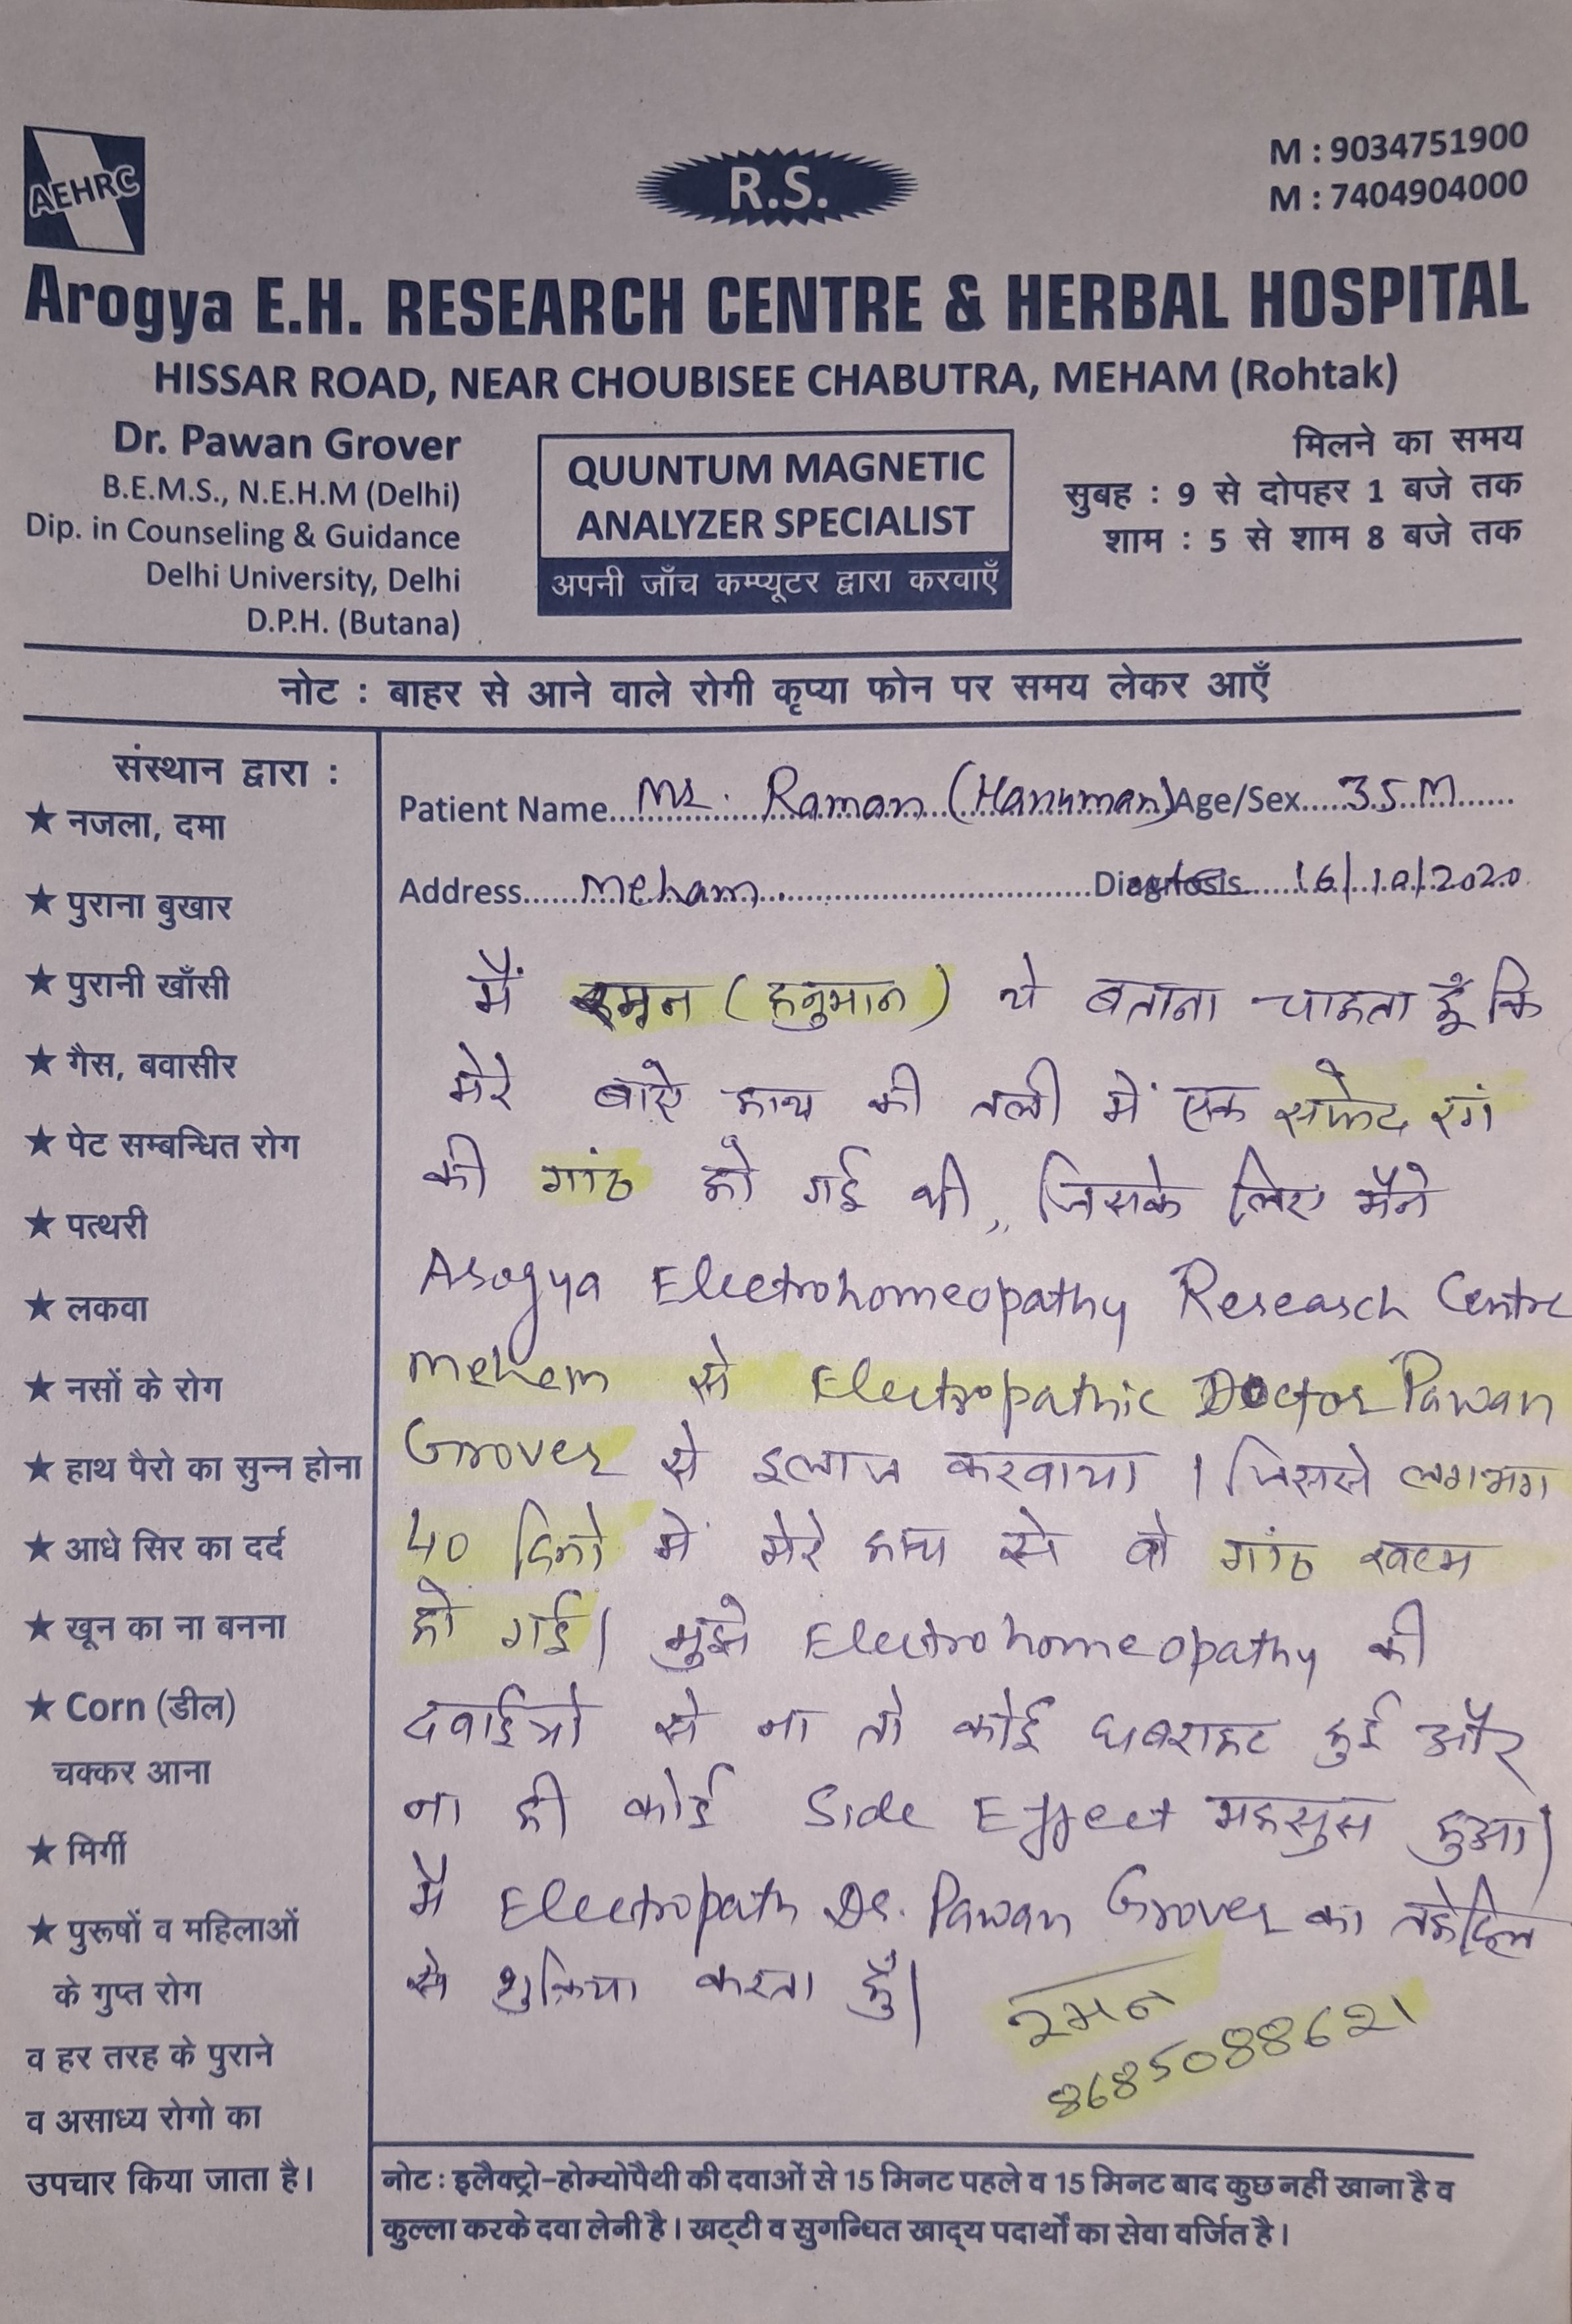 AEHRC
R.S.
M : 9034751900
M : 7404904000
Arogya E.H. RESEARCH CENTRE & HERBAL HOSPITAL
HISSAR ROAD, NEAR CHOUBISEE CHABUTRA, MEHAM (Rohtak)
Dr. Pawan Grover
B.E.M.S., N.E.H.M (Delhi)
Dip. in Counseling & Guidance
Delhi University, Delhi
D.P.H. (Butana)
QUUNTUM MAGNETIC
ANALYZER SPECIALIST
अपनी जाँच कम्प्यूटर द्वारा करवाएँ
मिलने का समय
सुबह : 9 से दोपहर 1 बजे तक
शाम : 5 से शाम 8 बजे तक
नोट : बाहर से आने वाले रोगी कृप्या फोन पर समय लेकर आएँ
संस्थान द्वारा :
★ नजला, दमा
★ पुराना बुखार
★ पुरानी खाँसी
★ गैस, बवासीर
★ पेट सम्बन्धित रोग
★ पत्थरी
★ लकवा
★ नसों के रोग
★ हाथ पैरो का सुन्न होना
★ आधे सिर का दर्द
★ खून का ना बनना
★ Corn (डील)
चक्कर आना
★ मिर्गी
★ पुरूषों व महिलाओं
के गुप्त रोग
व हर तरह के पुराने
व असाध्य रोगो का
उपचार किया जाता है।
Patient Name Mr. Raman (Hanuman) Age/Sex 35 M
Address Meham. Diagnosis 16/10/2020
मैं रमन (हनुमान) ये बताना चाहता हूँ कि
मेरे बाऐ हाथ की तली में एक सफेद रंग
की गांठ हो गई थी,, जिसके लिए मैंने
Arogya Electrohomeopathy Research Centre
Mehem से Electropathic Doctor Pawan
Grover से इलाज करवाया। जिससे लगभग
40 दिनो में मेरे हाथ से वो गांठ खत्म
हो गई। मुझे Electrohomeopathy की
दवाईओ से ना तो कोई घबराहट हुई और
ना ही कोई Side Effect महसुस हुआ।
मै Electropath Dr. Pawan Grover का तहेदिल
से शुक्रिया करता हुँ।
रमन
8685088621
नोट : इलैक्ट्रो-होम्योपैथी की दवाओं से 15 मिनट पहले व 15 मिनट बाद कुछ नहीं खाना है व
कुल्ला करके दवा लेनी है। खट्टी व सुगन्धित खाद्य पदार्थों का सेवा वर्जित है।